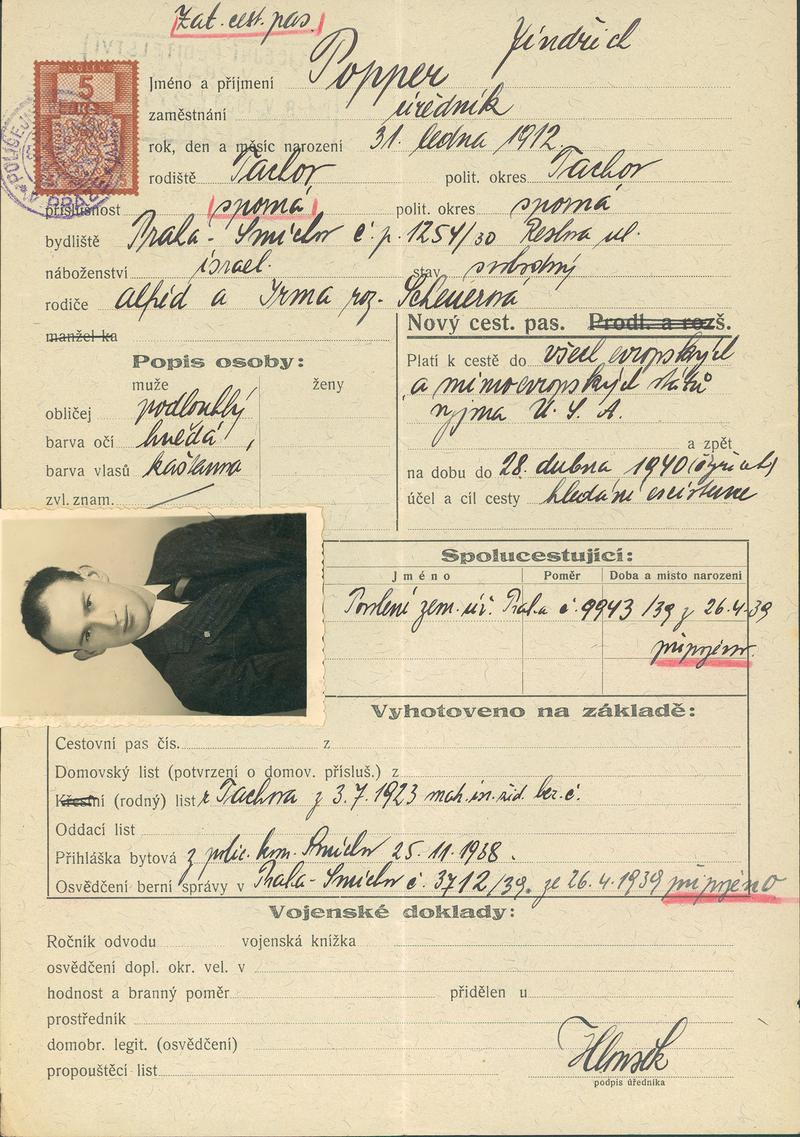 Zat. cest. pas.
Jméno a příjmení Popper Jindřich
5
Kč
zaměstnání úředník
rok, den a měsíc narození 31. ledna 1912.
rodiště Tachov polit. okres Tachov
příslušnost sporná polit. okres sporná
bydliště Praha - Smíchov č.p. 1254/30 ul.
náboženství israel. stav svobodný
rodiče Alfréd a Irma roz. Scheuerová
manžel-ka
Nový cest. pas. Prodl. a rozš.
Popis osoby:
muže ženy
obličej podlouhlý
barva očí hnědá
barva vlasů kaštanová
zvl. znam.
Platí k cestě do všech evropských
a mimoevropských států
vyjma U. S. A.
a zpět
na dobu do 28. dubna 1940
účel a cíl cesty hledání existence
Spolucestující:
Jméno Poměr Doba a místo narození
Povolení zem. úř. Praha č. 9943/39 z 26.4.39
připojeno.
Vyhotoveno na základě:
Cestovní pas čís. z
Domovský list (potvrzení o domov. přísluš.) z
Křestní (rodný) list z Tachova z 3.7.1923 bez č.
Oddací list
Přihláška bytová z polic. kom. Smíchov 25.11.1938.
Osvědčení berní správy v Praha - Smíchov č. 3712/39. ze 26.4.1939 připojeno
Vojenské doklady:
Ročník odvodu vojenská knížka
osvědčení dopl. okr. vel. v
hodnost a branný poměr přidělen u
prostředník
domobr. legit. (osvědčení)
propouštěcí list
podpis úředníka